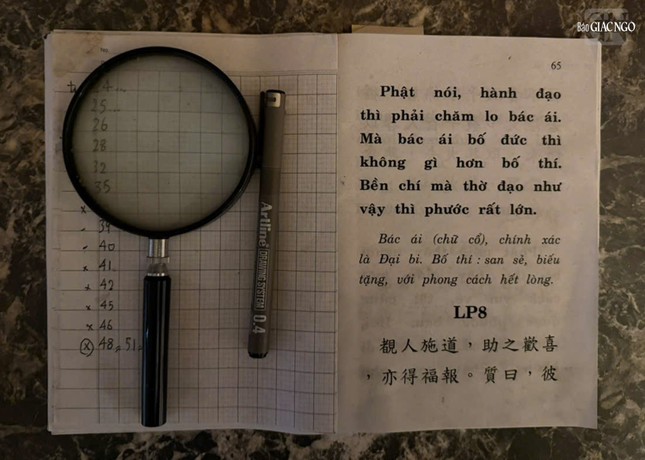 Báo GIÁC NGỘ
24
25
26
28
32
35
x
- 39
- 40
x 41
x 42
x 45
x 46
(x) 48 = 51
Artline
DRAWING SYSTEM 0.4
65
Phật nói, hành đạo
thì phải chăm lo bác ái.
Mà bác ái bố đức thì
không gì hơn bố thí.
Bền chí mà thờ đạo như
vậy thì phước rất lớn.
Bác ái (chữ cổ), chính xác
là Đại bi. Bố thí : san sẻ, biếu
tặng, với phong cách hết lòng.
LP8
覩人施道，助之歡喜
，亦得福報。質曰，彼